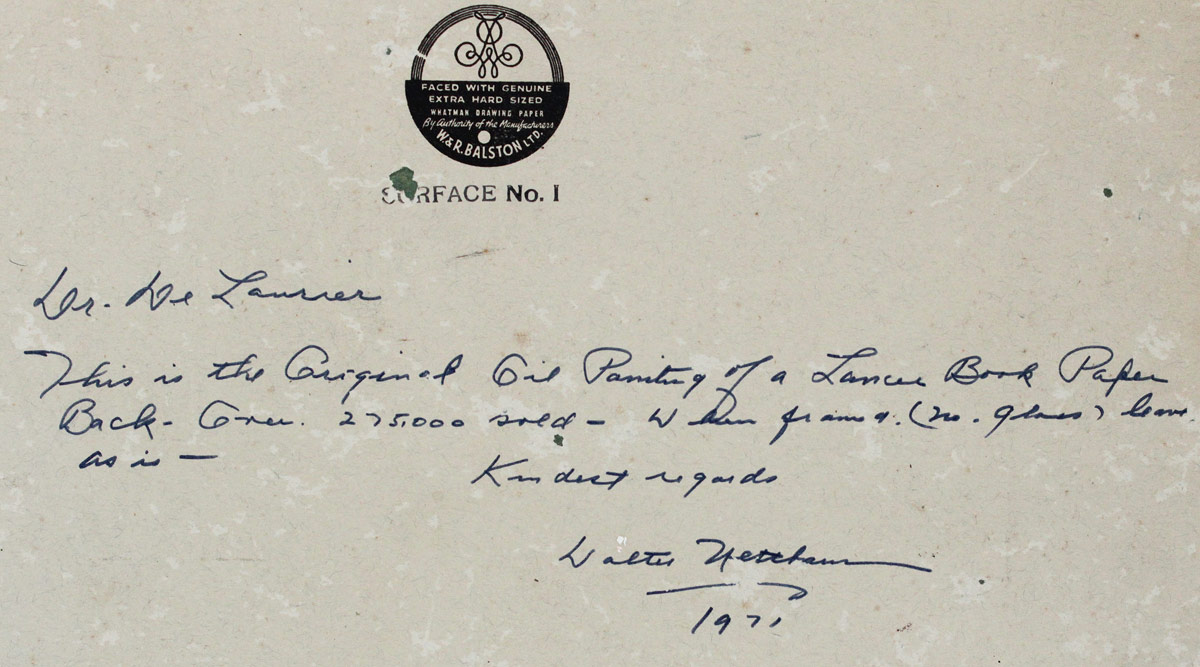 FACED WITH GENUINE
EXTRA HARD SIZED
WHATMAN DRAWING PAPER
By Authority of the Manufacturers
W. & R. BALSTON LTD.
SURFACE No. I
Dr. De Laurier
This is the Original Oil Painting of a Lancer Book Paper
Back - Over. 275,000 sold - When framed. (no. glass) leave
as is -
Kindest regards
Walter
1971